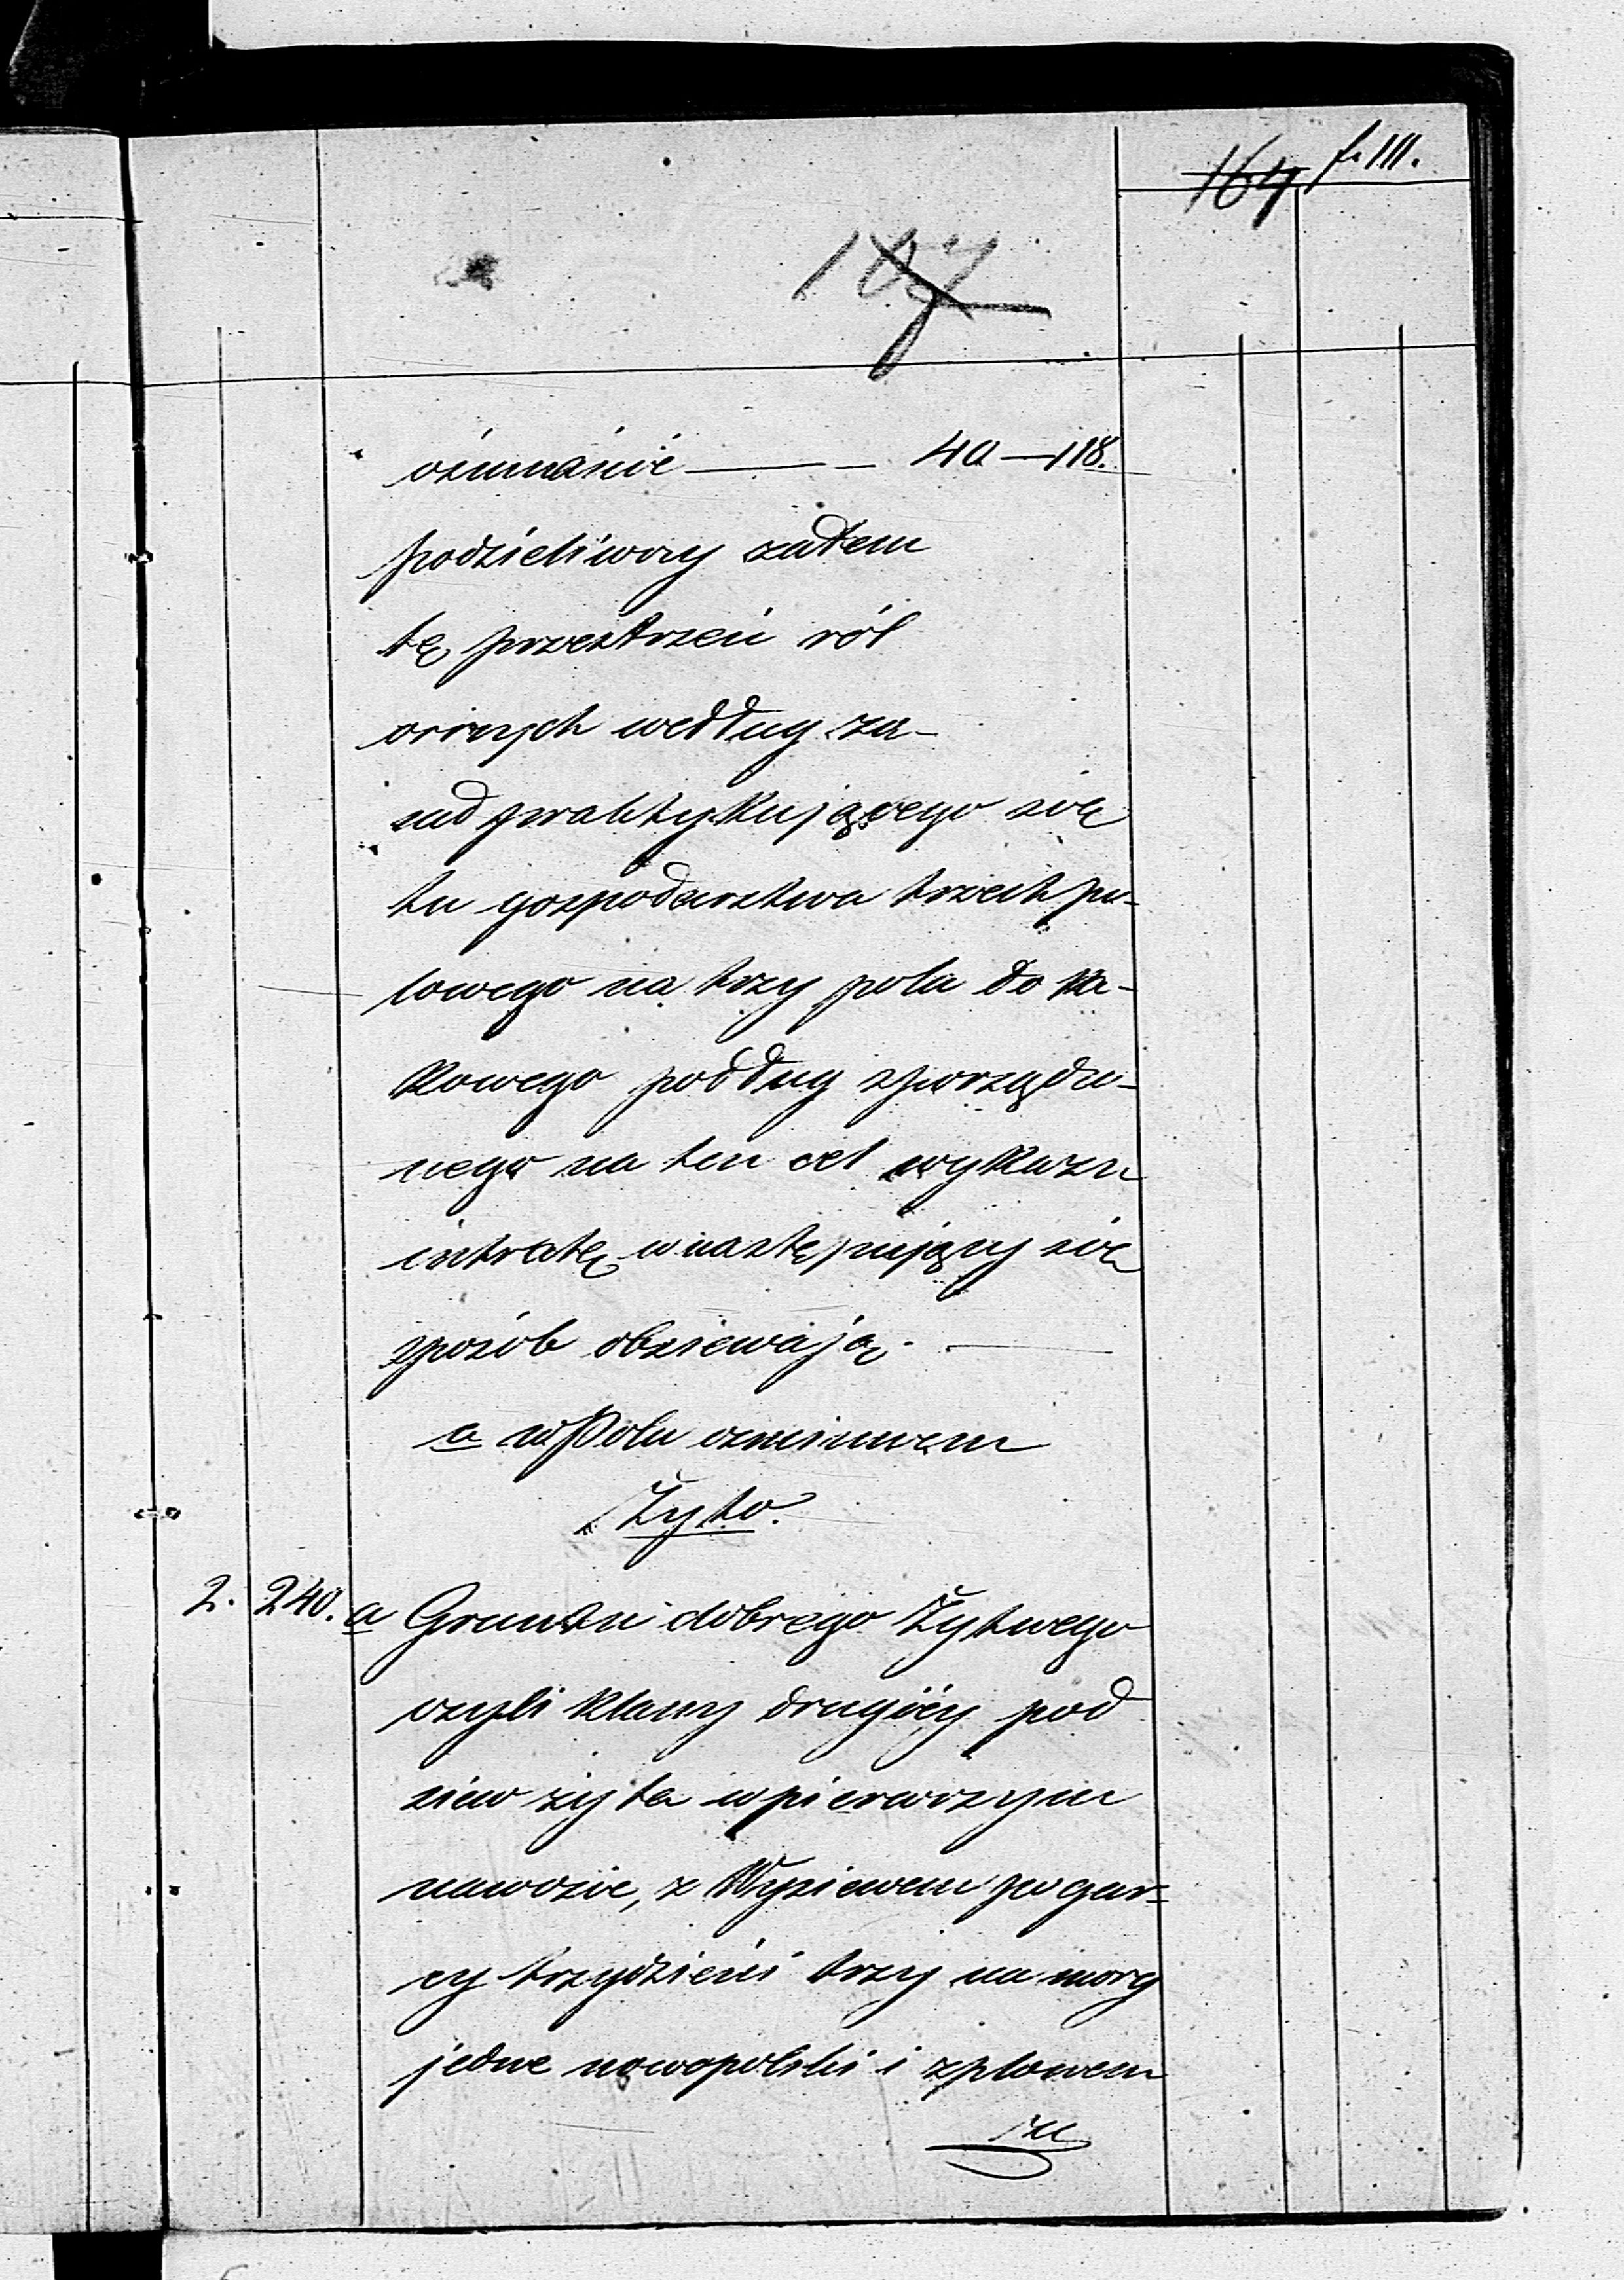 164 f. 111.
187
ośmnaście — 40 — 118.
podzieliwszy zatem
tę przestrzeń ról
ornych według za-
sad praktykującego się
tu gospodarstwa trzech po-
lowego na trzy pola do ta-
kowego podług sporządzo-
nego na ten cel wykazu
intratę w następujący się
sposób obsiewają. —
a w Polu ozimowem
Żyto.
2. 240. a Gruntu dobrego Żytnego
czyli klassy drugiéy pod
siew żyta w pierwszym
nawozie, z Wysiewem po gar-
cy trzydzieści trzy na morg
jeden nowopolski i z plonem